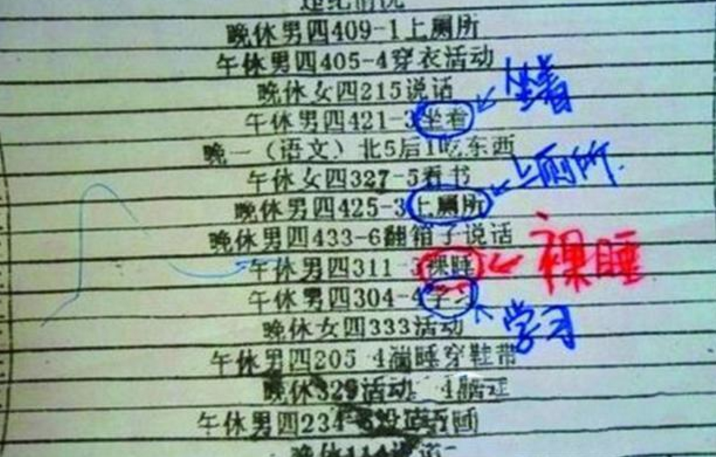 违纪情况
晚休男四409-1上厕所
午休男四405-4穿衣活动
晚休女四215说话
午休男四421-3坐着
坐着
晚一（语文）北5后1吃东西
午休女四327-5看书
晚休男四425-3上厕所
上厕所
晚休男四433-6翻箱子说话
午休男四311-3裸睡
裸睡
午休男四304-4学习
学习
晚休女四333活动
午休男四205 4 睡穿鞋带
晚休329活动
午休男四234 睡
晚休114